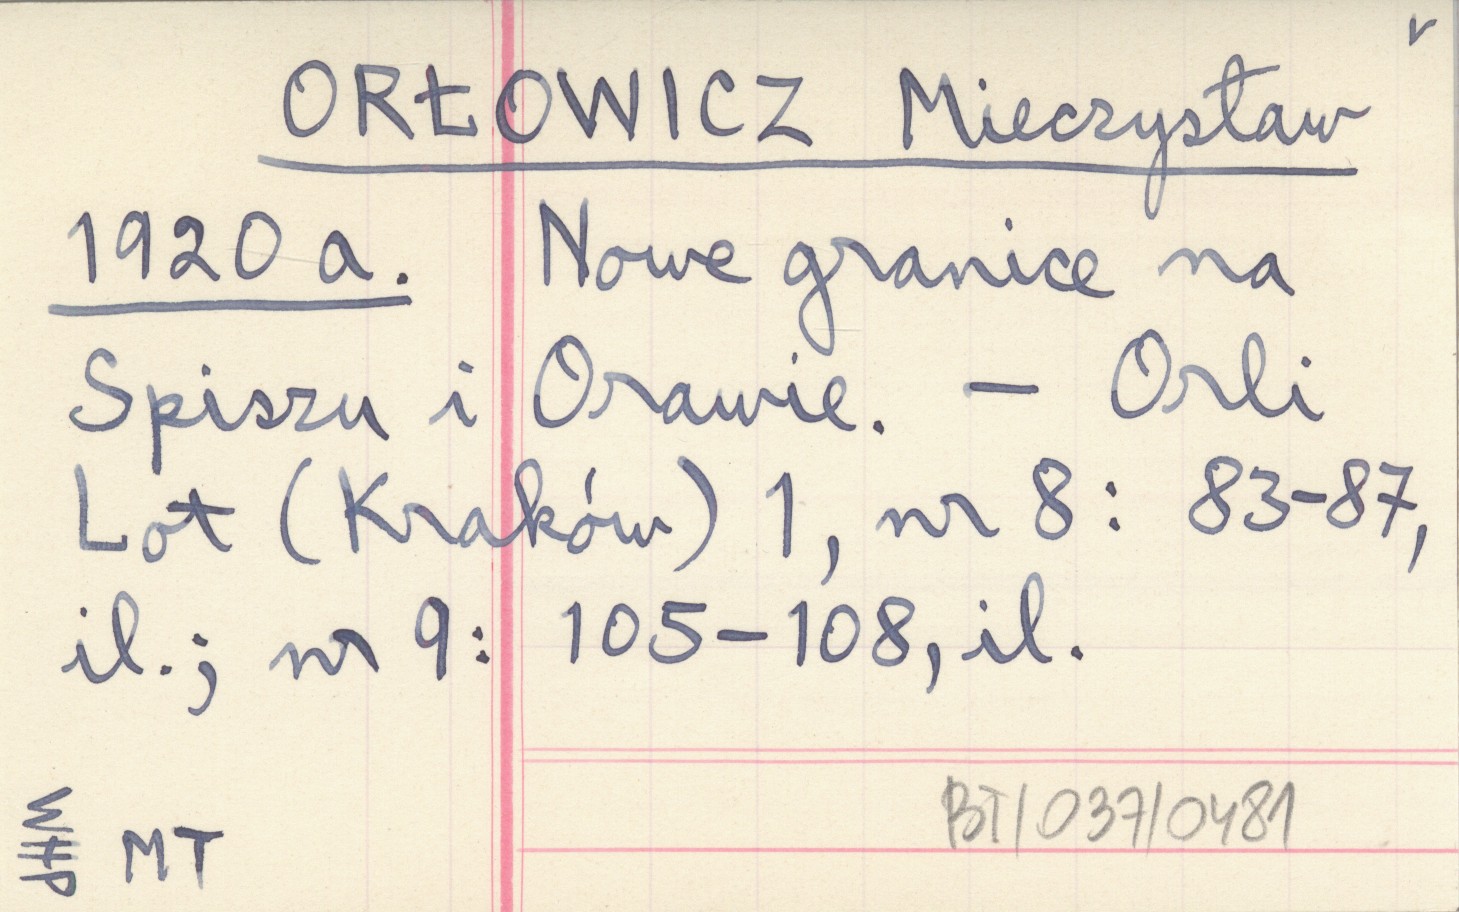 v
ORŁOWICZ Mieczysław
1920 a. Nowe granice na
Spiszu i Orawie. – Orli
Lot (Kraków) 1, nr 8: 83-87,
il.; nr 9: 105-108, il.
BT/037/0481
WHP MT